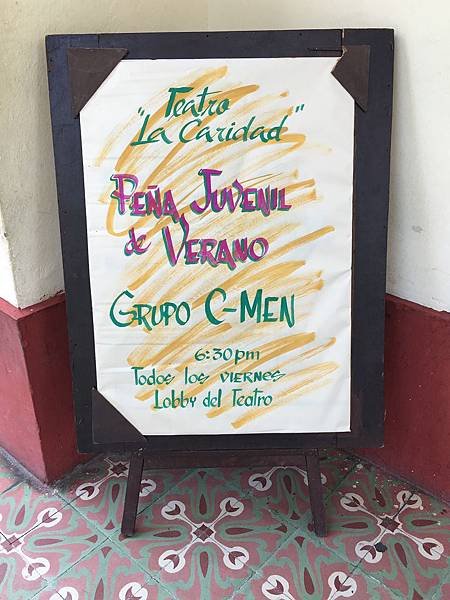 "Teatro
La Caridad"
PEÑA JUVENIL
de VERANO
GRUPO C-MEN
6:30pm
Todos los VIERNES
Lobby del Teatro